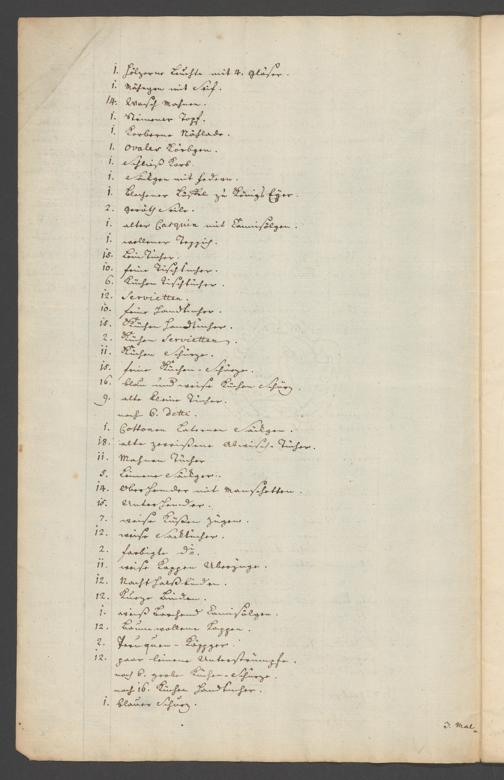 1. hölzerne Leuchte mit 4. Gläser.
1. mit
14. Wasch Mahnen.
1. Steinener Topf.
1. Korberne Nählade.
1. Ovales Körbgen.
1. Schließ Korb
1. Säckgen mit Federn.
1. zu Königs Eyer.
2. Seile.
1. alter Casquin mit Camisölgen.
1. wollener Teppich.
18. Leintücher.
10. feine Tischtücher.
6. Küchen Tischtücher.
12. Servietten.
10. feine Handtücher.
18. Küchen Handtücher.
2. Küchen Servietten.
11. Küchen Schürze.
18. feine Küchen-Schürze.
16. blau und weise Küchen Schürz
9. alte kleine Tücher.
noch 6. detti.
1. Cottonen Laternen Säckgen.
18. alte zerrißene Abwisch-Tücher.
11. Mahnen Tücher
5. Leinene Säckger.
14. Oberhemder mit Manschetten.
18. Unterhemder.
7. weise Küßen Zügen.
12. weise Sacktücher.
2. farbigte do.
11. weise Kappen Überzüge.
12. Nacht Halßbinden.
12. Kurze Binden.
1. weiß Barchend Camisölgen.
12. Baumwollene Kappen.
2. Peruquen-
12. paar leinene Unterstrümpfe.
noch 6. grobe Küchen-Schürze.
noch 16. Küchen Handtücher.
1. blauer Schurz.
3. Mal_